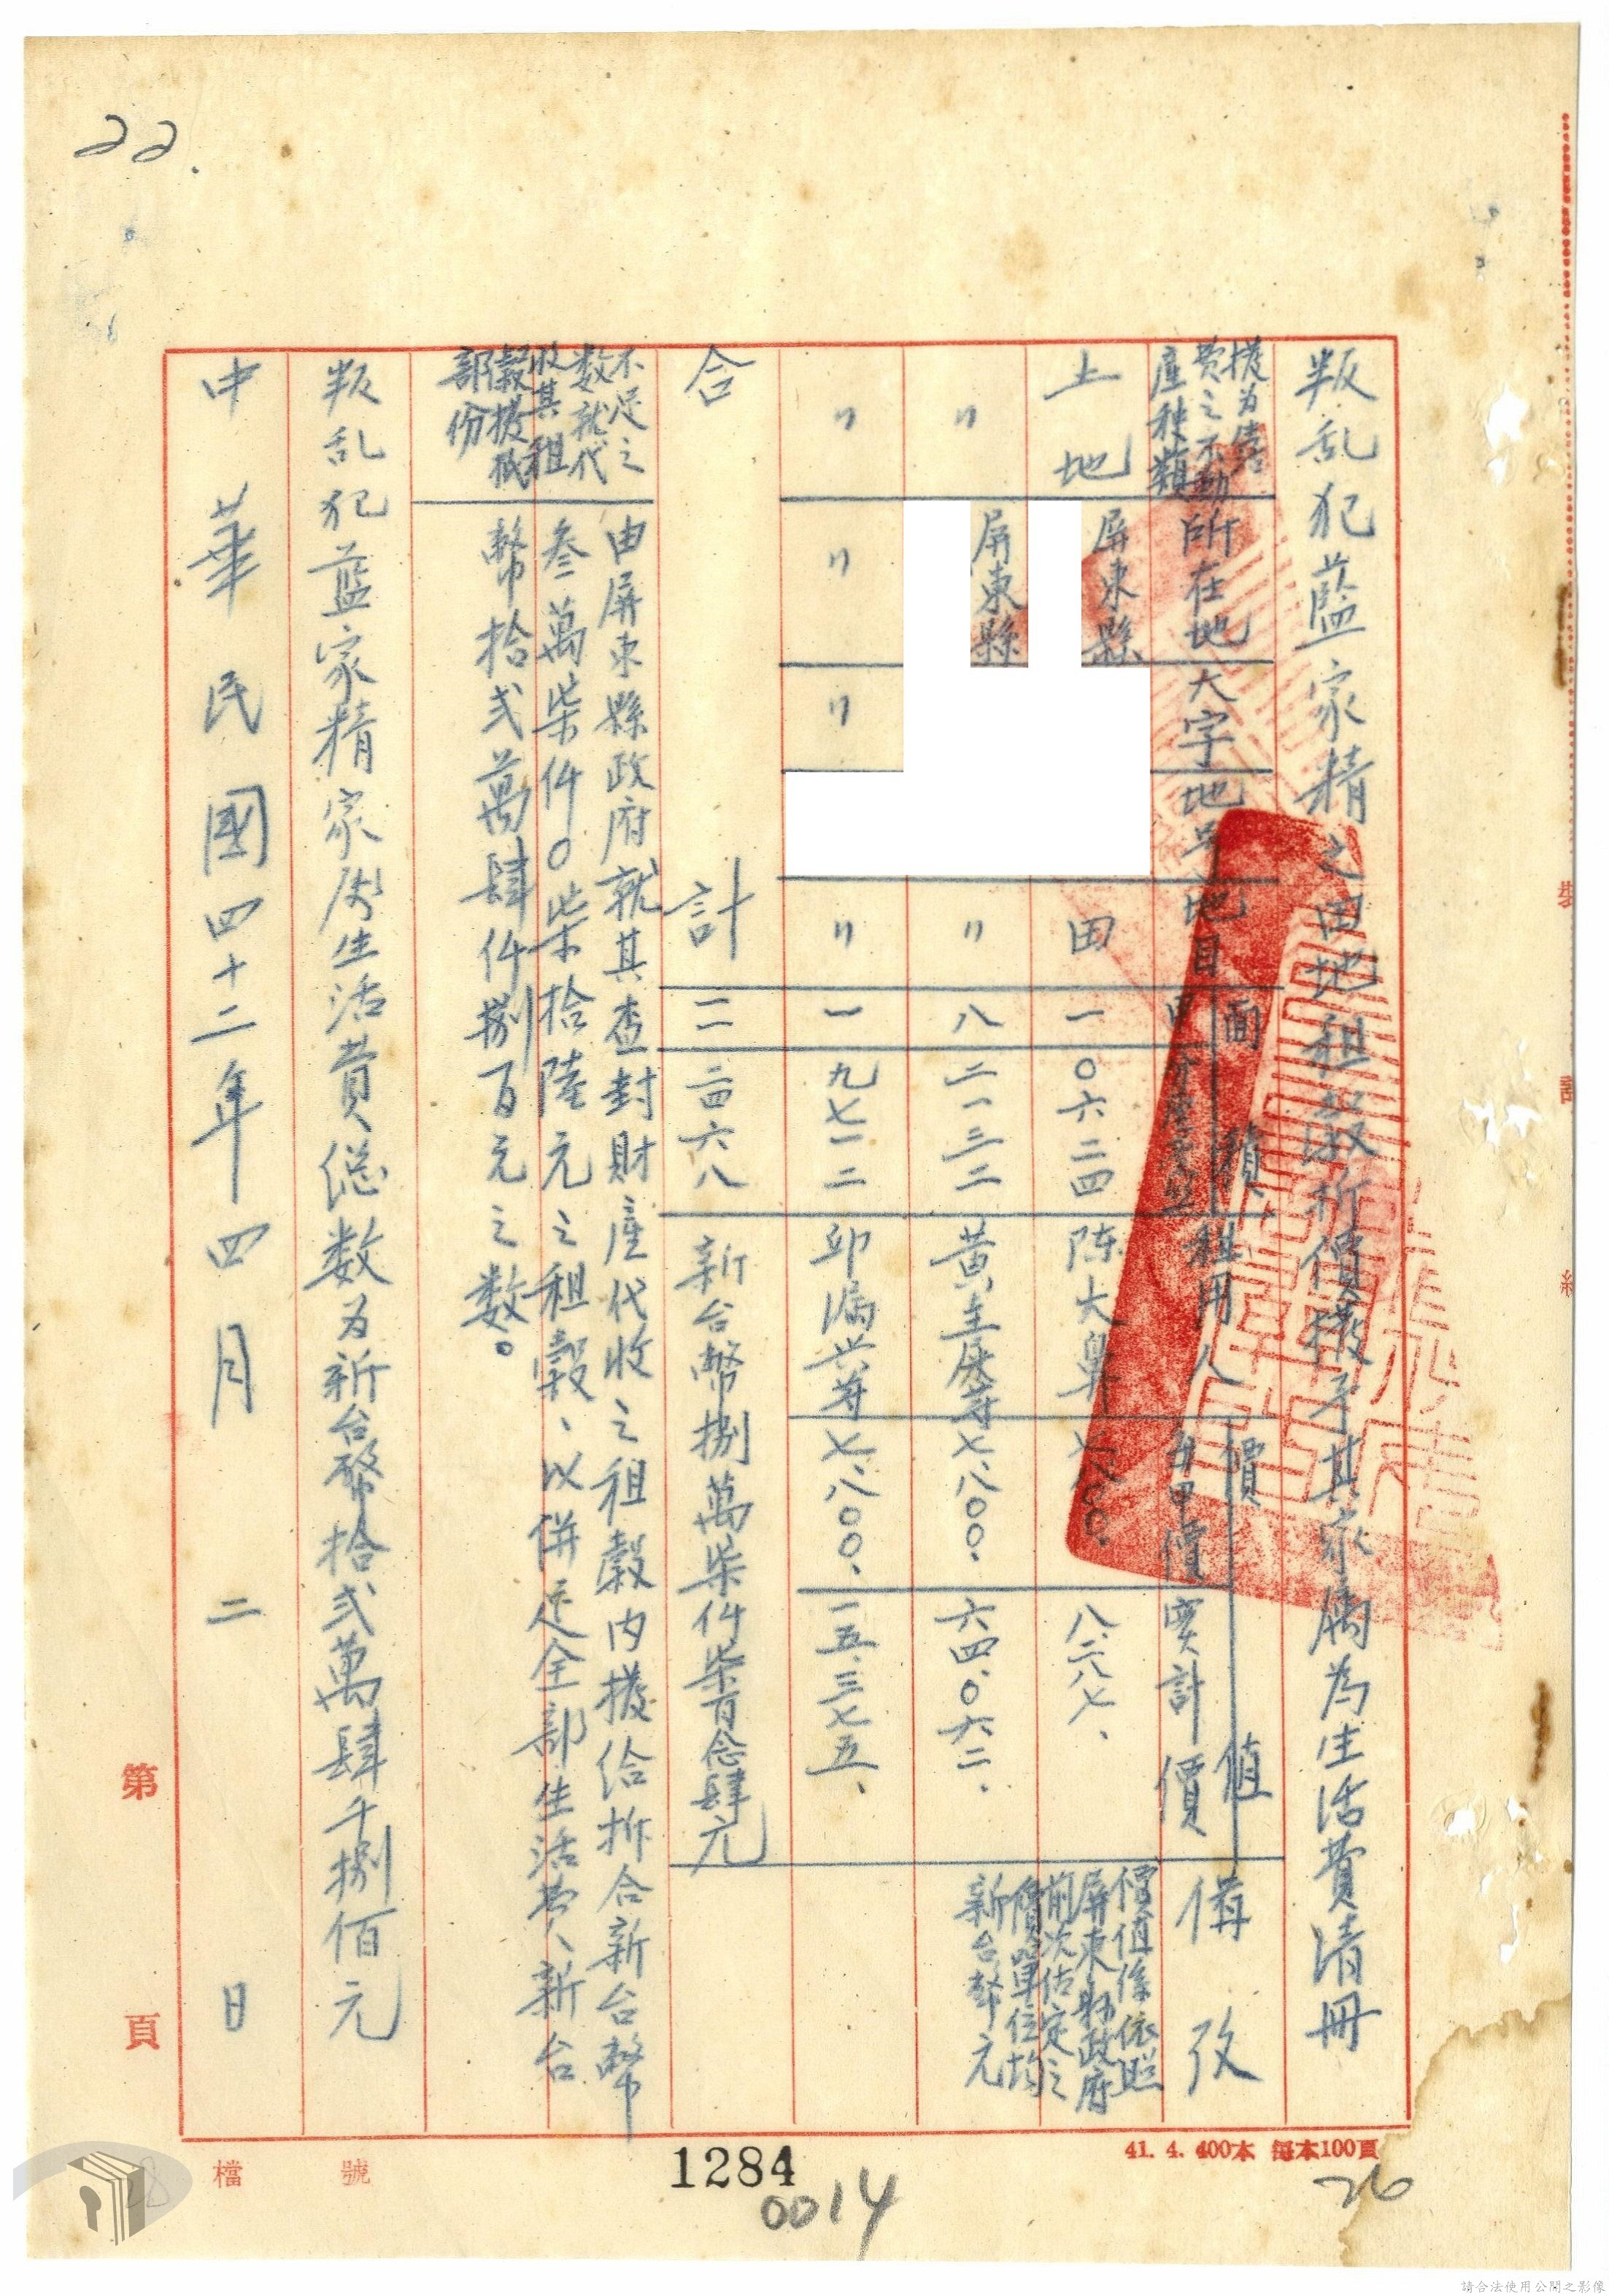 22.
叛乱犯藍家精之田地租谷折價撥予其家屬為生活費清冊
撥為生活費之不動產種類
所在地
大字
地号
地目
面積
甲
租用人
價值
每甲價
實計價
備攷
土地
屏東縣
田
一
〇六二四
陈大
七、八〇〇.
八、二八七、
價值係依照屏東縣政府前次估定之價單位均新台幣元
〃
屏東縣
〃
八
二一三二
黃
七、八〇〇.
六四、〇六二.
〃
〃
〃
〃
一
九七一二
邱
七、八〇〇、
一五、三七五、
合計
一一
二四六八
新台幣捌萬柒仟柒百念肆元
不足之数就代收其租榖撥抵部份
由屏東縣政府就其查封財産代收之租榖内撥给折合新台幣
叁萬柒仟〇柒拾陸元之租榖、以併足全部生活费、新台
幣拾弍萬肆仟捌百元之数。
叛乱犯藍家精家屬生活費総数为新台幣拾弍萬肆千捌佰元
中華民國四十二年四月二日
第頁
檔號
1284
0014
41. 4. 400本 每本100頁
26
28
裝
訂
線
請合法使用公開之影像